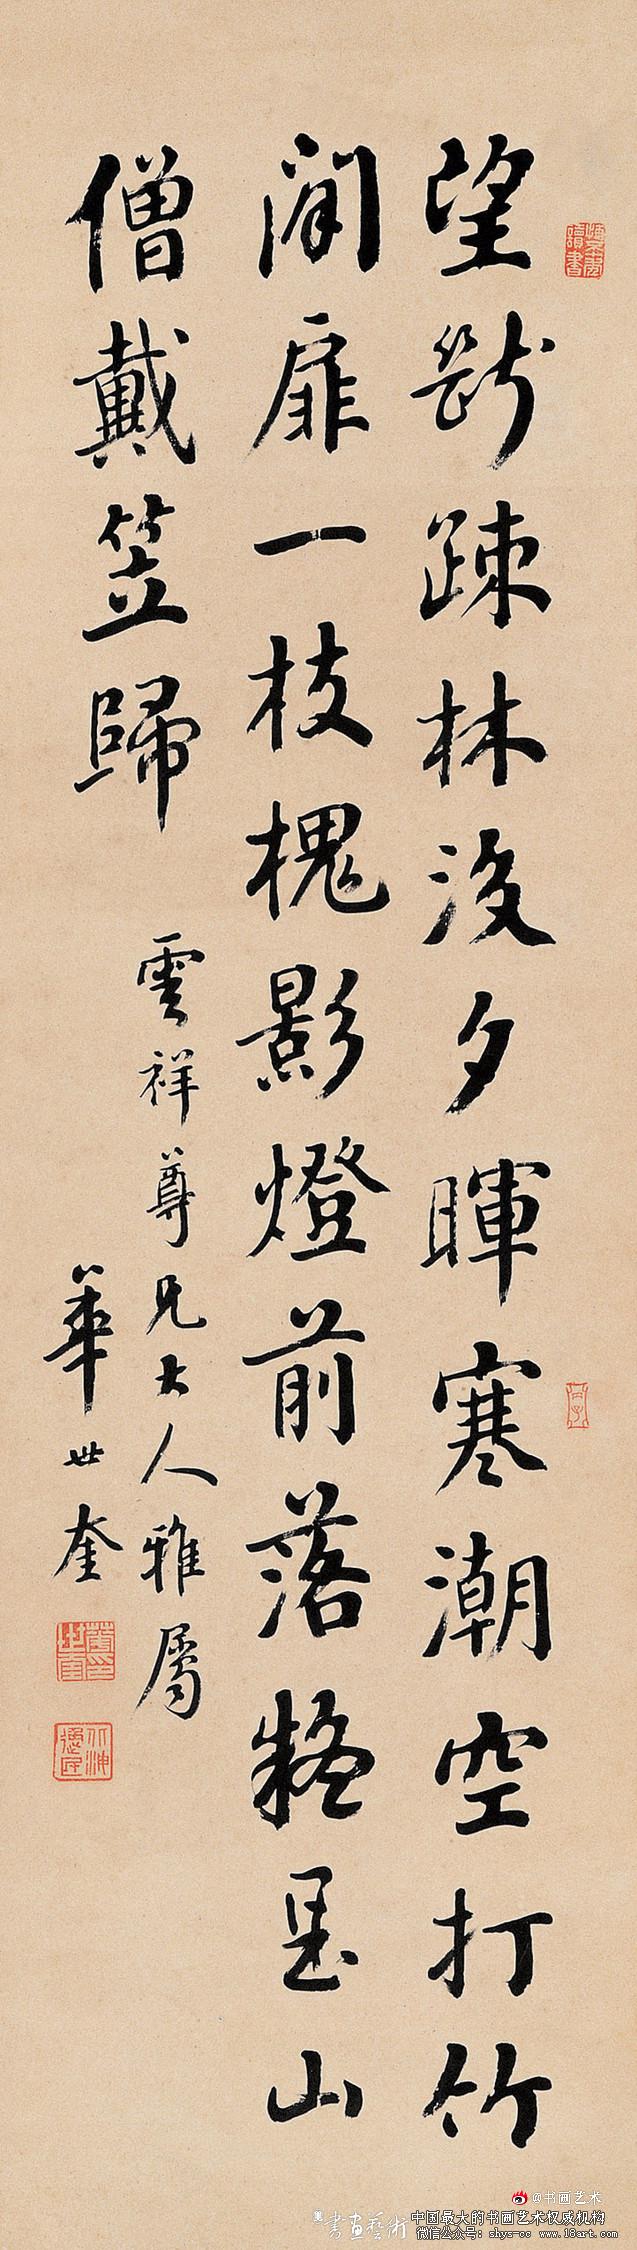 望斷疎林沒夕暉寒潮空打竹
閒扉一枝槐影燈前落疑是山
僧戴笠歸
雲祥尊兄大人雅屬
華世奎
@书画艺术
書畫藝術
中国最大的书画艺术权威机构
微信公众号: shys-cc www.18art.com